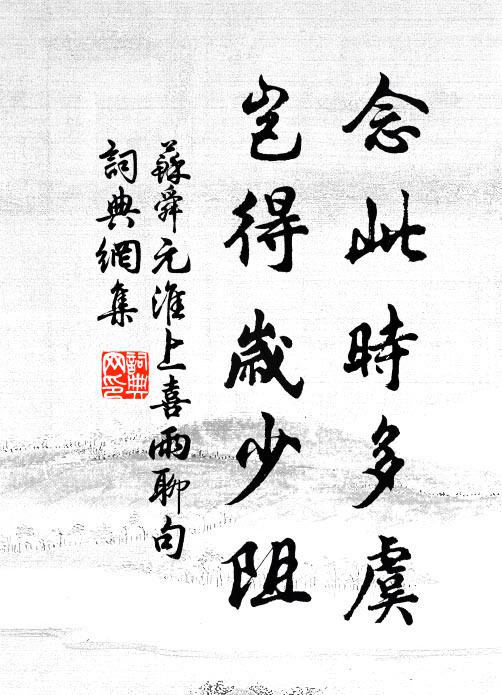 念此時多虞
豈得歲少阻
蘇舜元淮上喜雨聊句
詞典網集
詞典網印